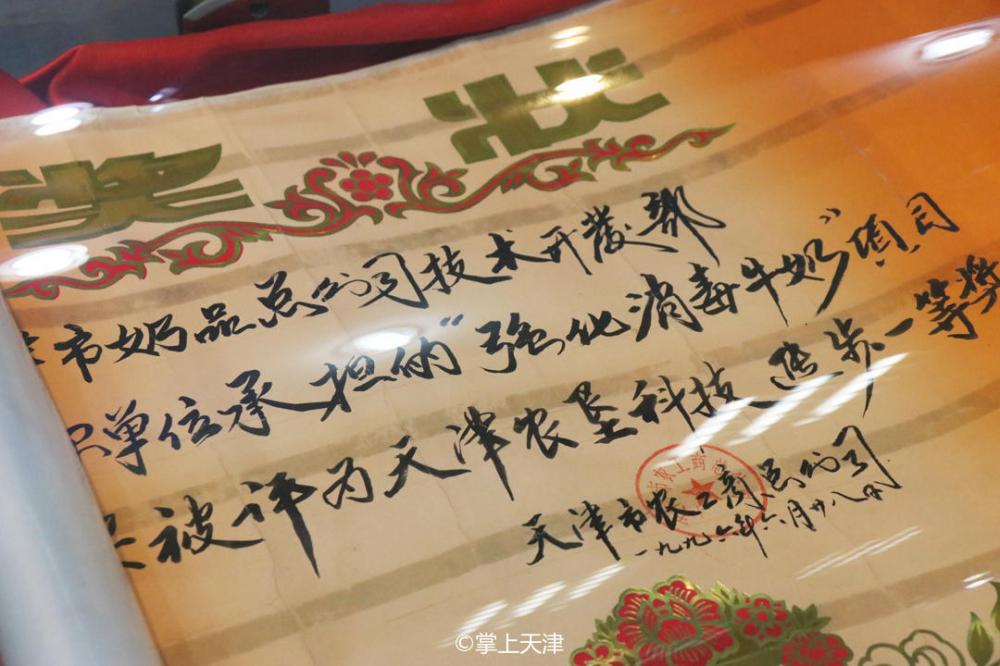 奖状
市奶品总公司技术开發部
单位承担的“强化消毒牛奶”項目
被评为天津农垦科技进步一等奖
天津市农工商总公司
一九九六年六月廿八日
©掌上天津